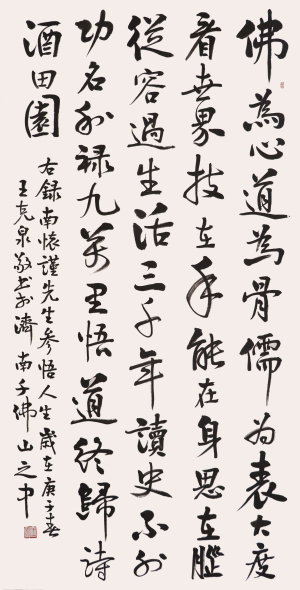 佛為心道為骨儒为表大度
看世界技在手能在身思在腦
從容過生活三千年讀史不外
功名利禄九萬里悟道终歸詩
酒田園
右録南懷謹先生参悟人生歲在庚子春
王克泉敬书於濟南千佛山之中